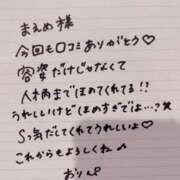 まえぬ 様
今回も口コミありがとう♡
容姿だけじゃなくて
人柄までほめてくれてる!!
うれしいけどほめすぎでは…?×
Sっ気だしてくれてうれしいよ♡
これからもよろしくね♪
おりん